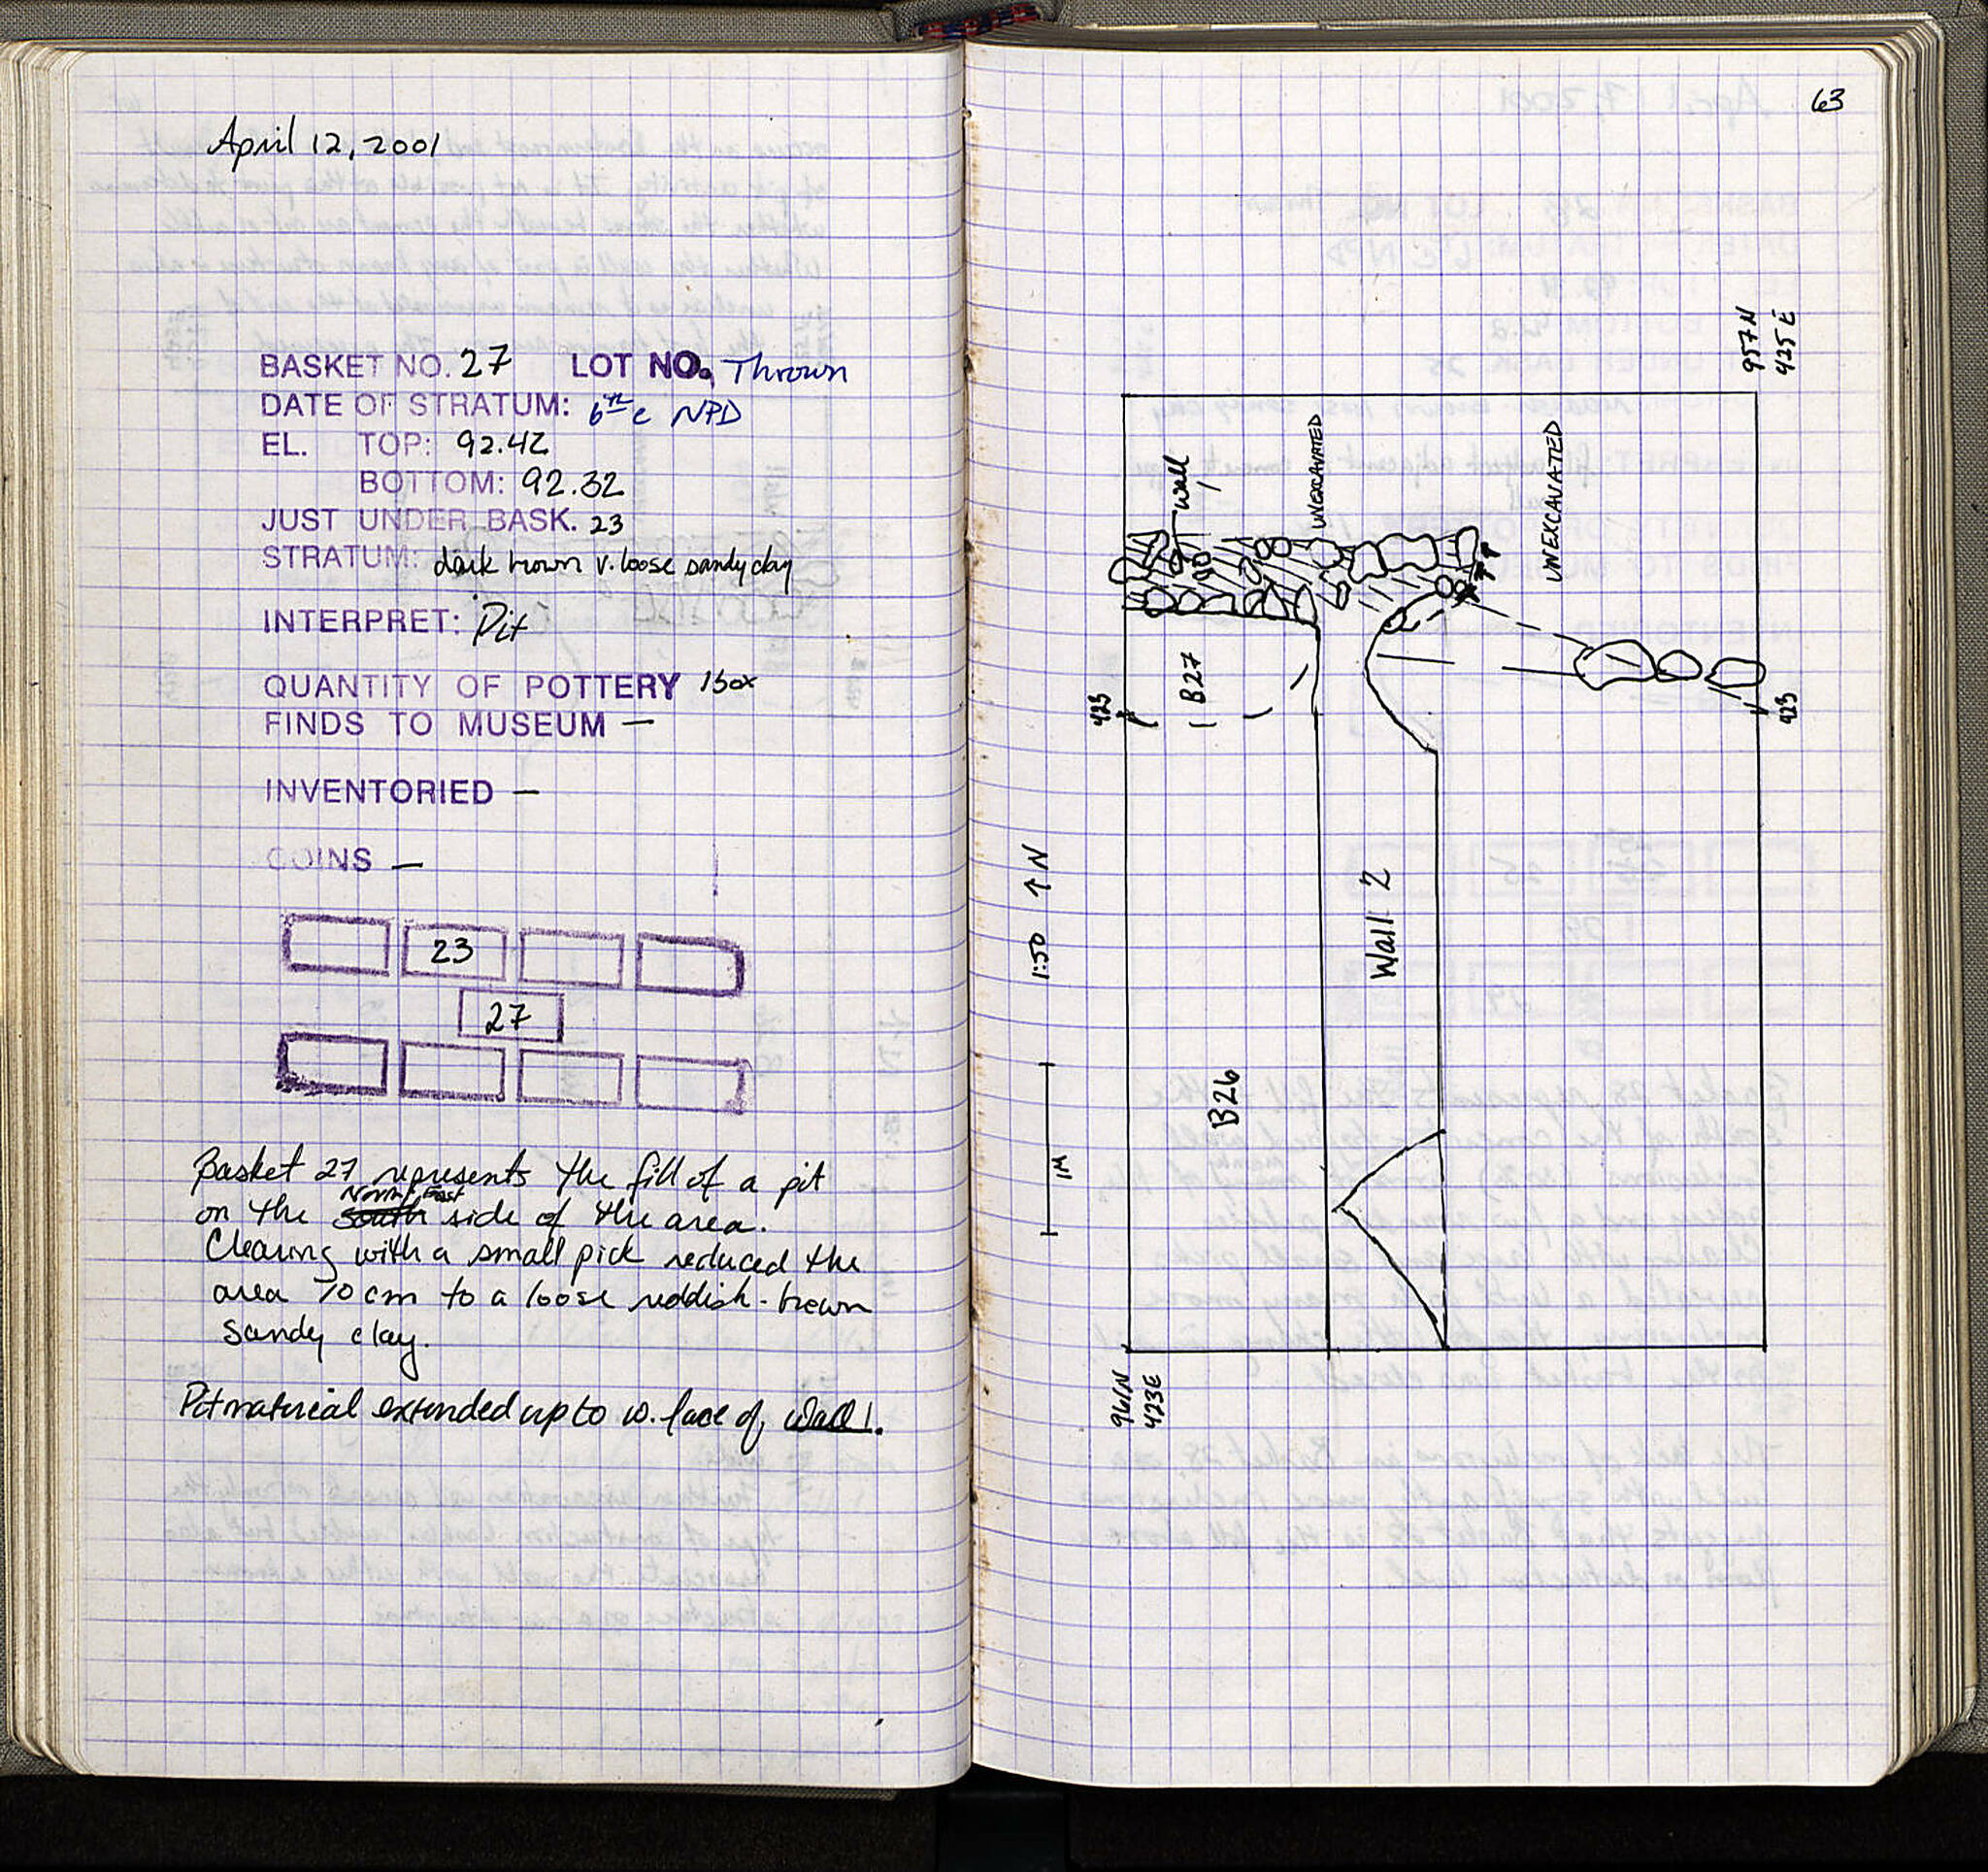 April 12, 2001
BASKET NO. 27 LOT NO. Thrown
DATE OF STRATUM: 6th c NPD
EL. TOP: 92.42
BOTTOM: 92.32
JUST UNDER BASK. 23
STRATUM: dark brown v. loose sandy clay
INTERPRET: Pit
QUANTITY OF POTTERY 1 box
FINDS TO MUSEUM —
INVENTORIED —
COINS —
23
27
Basket 27 represents the fill of a pit
on the south North East side of the area.
Clearing with a small pick reduced the
area 10 cm to a loose reddish-brown
sandy clay.
Pit material extended up to w. face of Wall 1.
63
957N
425E
wall 1
UNEXCAVATED
UNEXCAVATED
B27
423
423
Wall 2
1:50 ↑N
1M
B26
961N
423E